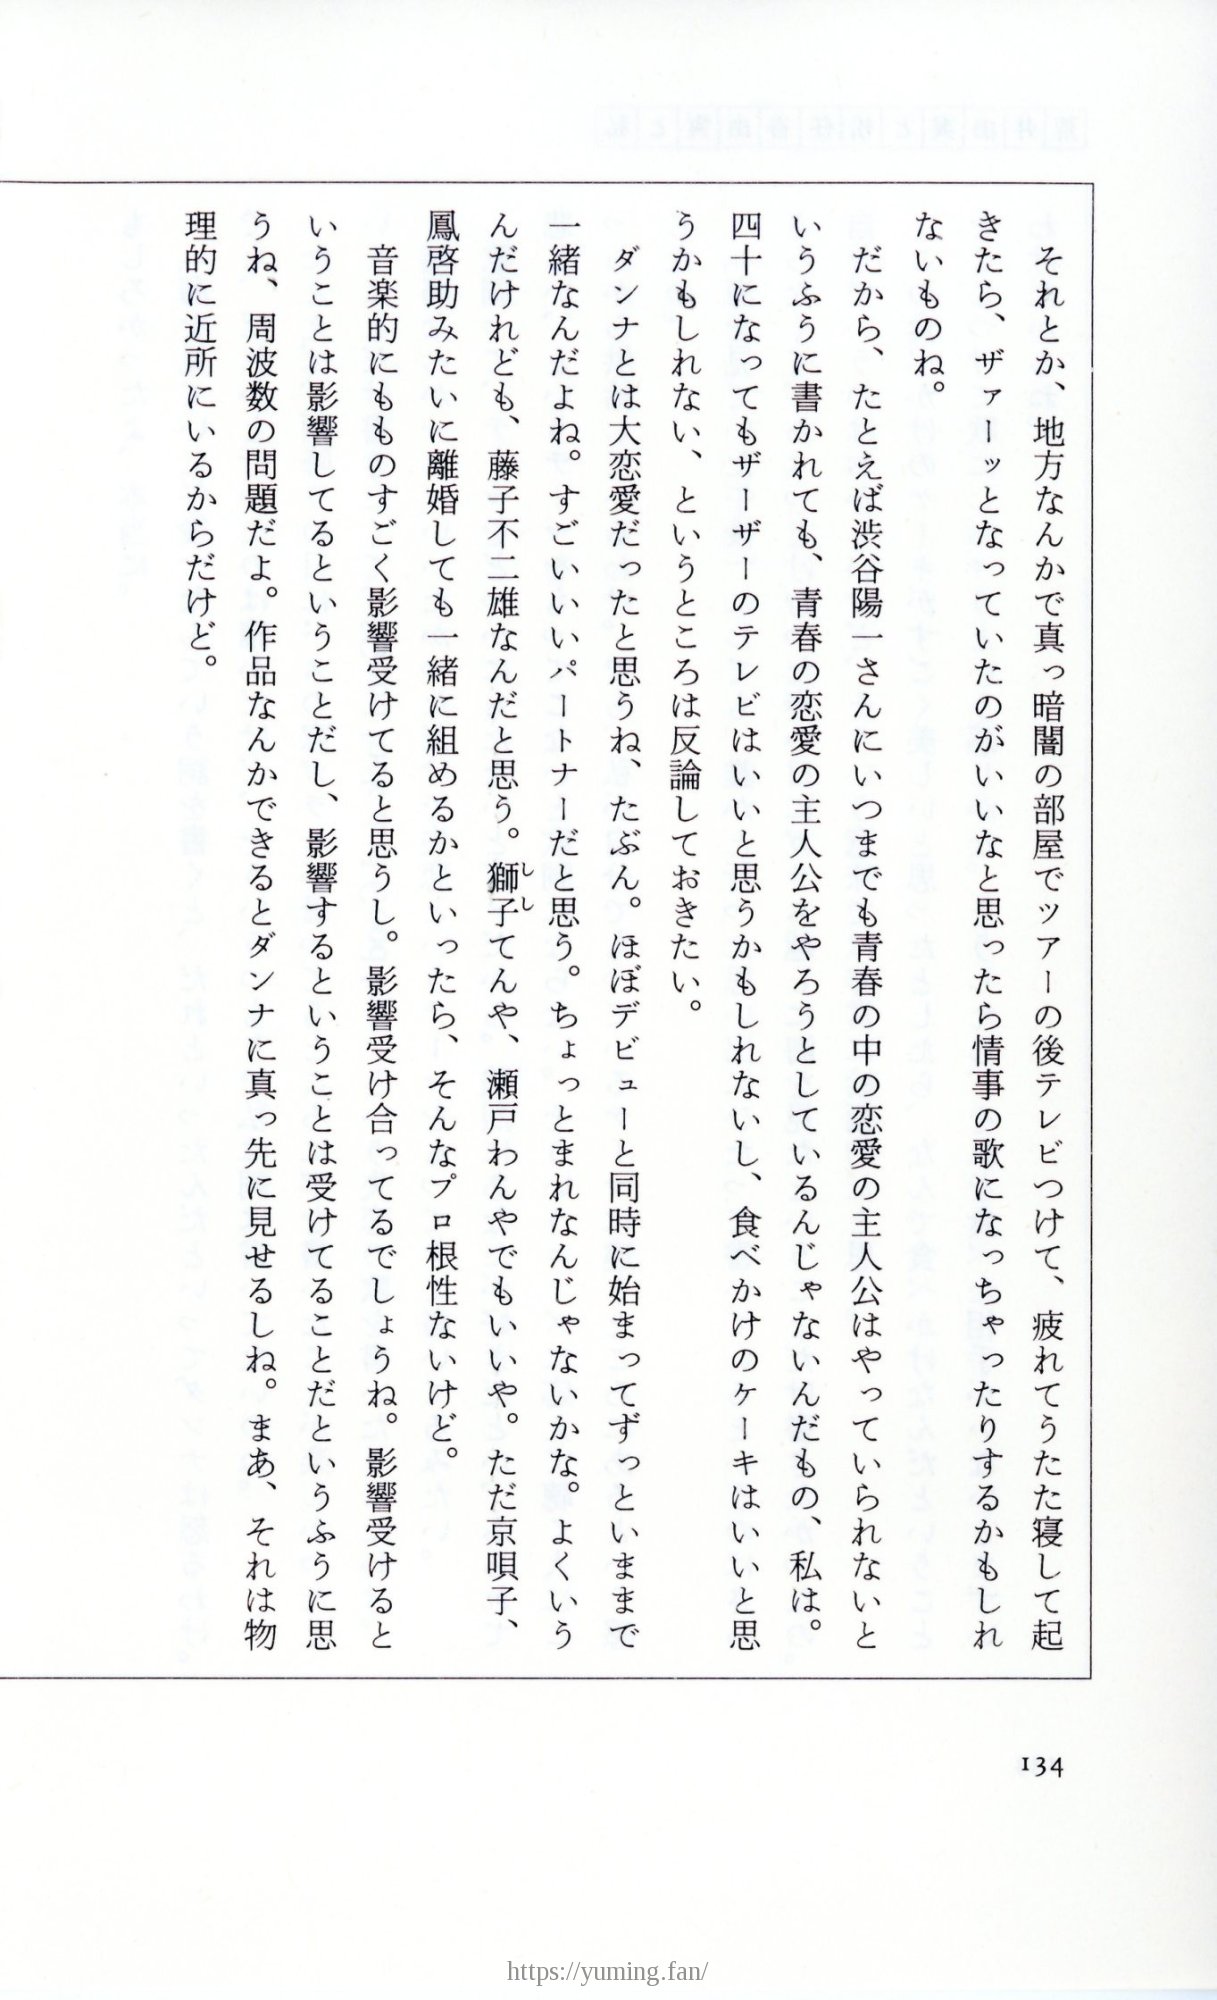 それとか、地方なんかで真っ暗闇の部屋でツアーの後テレビつけて、疲れてうたた寝して起
きたら、ザァーッとなっていたのがいいなと思ったら情事の歌になっちゃったりするかもしれ
ないものね。
だから、たとえば渋谷陽一さんにいつまでも青春の中の恋愛の主人公はやっていられないと
いうふうに書かれても、青春の恋愛の主人公をやろうとしているんじゃないんだもの、私は。
四十になってもザーザーのテレビはいいと思うかもしれないし、食べかけのケーキはいいと思
うかもしれない、というところは反論しておきたい。
ダンナとは大恋愛だったと思うね、たぶん。ほぼデビューと同時に始まってずっといままで
一緒なんだよね。すごいいいパートナーだと思う。ちょっとまれなんじゃないかな。よくいう
んだけれども、藤子不二雄なんだと思う。獅子てんや、瀬戸わんやでもいいや。ただ京唄子、
しし
鳳啓助みたいに離婚しても一緒に組めるかといったら、そんなプロ根性ないけど。
音楽的にものすごく影響受けてると思うし。影響受け合ってるでしょうね。影響受けると
いうことは影響してるということだし、影響するということは受けてることだというふうに思
うね、周波数の問題だよ。作品なんかできるとダンナに真っ先に見せるしね。まあ、それは物
理的に近所にいるからだけど。
134
https://yuming.fan/